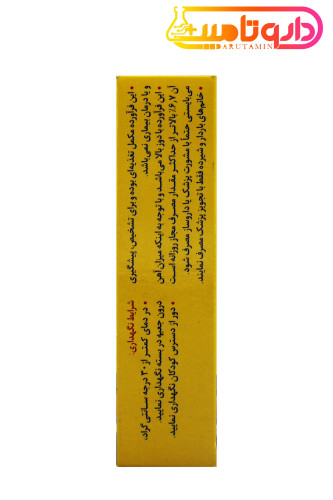 داروتامین
DARUTAMIN
• این فرآورده مکمل تغذیه‌ای بوده و برای تشخیص، پیشگیری
و یا درمان بیماری نمی‌باشد.
• این فرآورده با دوز بالا می‌باشد و با توجه به اینکه میزان آهن
آن ۶,۷٪ بالاتر از حداکثر مقدار مصرف مجاز روزانه است
می‌بایستی حتماً با مشورت پزشک یا داروساز مصرف شود.
• خانم‌های باردار و شیرده فقط با تجویز پزشک مصرف نمایند.
شرایط نگهداری:
• در دمای کمتر از ۳۰ درجه سانتی گراد،
درون جعبه در بسته نگهداری نمایید.
• دور از دسترس کودکان نگهداری نمایید.